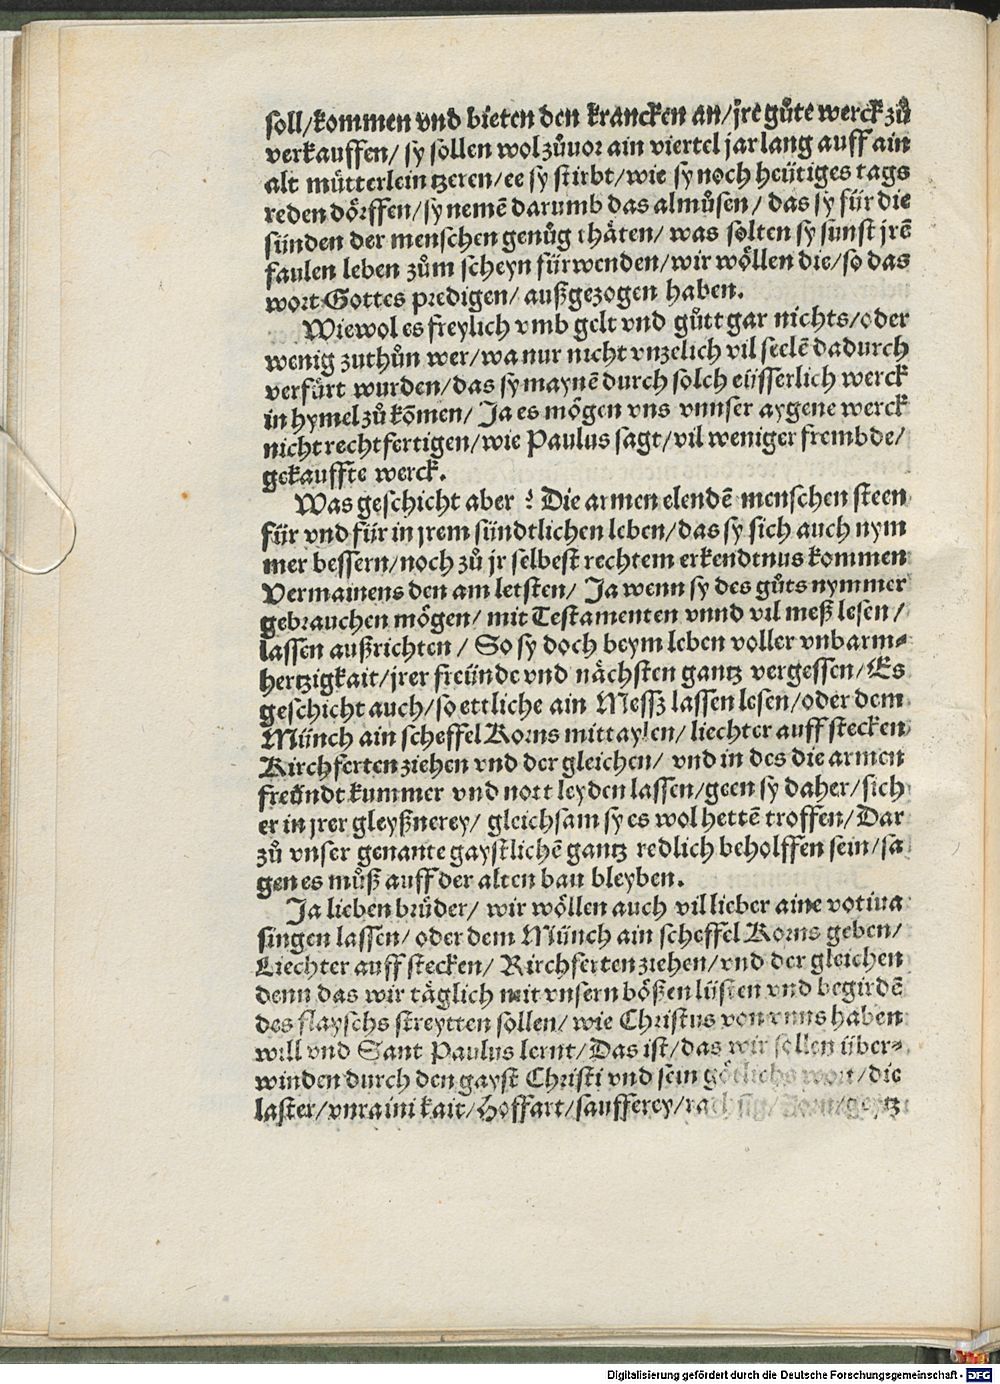 soll/kommen vnd bieten den krancken an/jre gůte werck zů
verkauffen/ sy sollen wol zůuor ain viertel jar lang auff ain
alt můtterlein tzeren/ee sy stirbt/wie sy noch heütiges tags
reden dörffen/sy nemē darumb das almůsen/ das sy für die
sünden der menschen genůg thäten/ was solten sy sunst jrē
faulen leben zům scheyn fürwenden/wir wöllen die/so das
wort Gottes predigen/ außgezogen haben.
Wiewol es freylich vmb gelt vnd gůtt gar nichts/oder
wenig zuthůn wer/wa nur nicht vnzelich vil seelē dadurch
verfürt wurden/das sy maynē durch solch eüsserlich werck
in hymel zů kōmen/ Ja es mögen vns vnnser aygene werck
nicht rechtfertigen/wie Paulus sagt/vil weniger frembde/
gekauffte werck.
Was geschicht aber ? Die armen elendē menschen steen
für vnd für in jrem sündtlichen leben/das sy sich auch nym
mer bessern/noch zů jr selbest rechtem erkendtnus kommen
Vermainens den am letsten/ Ja wenn sy des gůts nymmer
gebrauchen mögen/ mit Testamenten vnnd vil meß lesen/
lassen außrichten/ So sy doch beym leben voller vnbarm-
hertzigkait/jrer freünde vnd nächsten gantz vergessen/Es
geschicht auch/so ettliche ain Messz lassen lesen/oder dem
Münch ain scheffel Korns mittaylen/liechter auff stecken
Kirchferten ziehen vnd der gleichen/ vnd in des die armen
freündt kummer vnd nott leyden lassen/geen sy daher/sich
er in jrer gleyßnerey/ gleichsam sy es wol hettē troffen/Dar
zů vnser genante gaystlichē gantz redlich beholffen sein/sa
gen es můß auff der alten ban bleyben.
Ja lieben brüder/ wir wöllen auch vil lieber aine votiua
singen lassen/ oder dem Münch ain scheffel Korns geben/
Liechter auff stecken/ Kirchferten ziehen/vnd der gleichen
denn das wir täglich mit vnsern bößen lüsten vnd begirdē
des flayschs streytten sollen/ wie Christus von vnns haben
will vnd Sant Paulus lernt/Das ist/das wir sollen über-
winden durch den gayst Christi vnd sein götlichs wort/die
laster/vnrainikait/Hoffart/saufferey/rachsig/Zorn/geytz
Digitalisierung gefördert durch die Deutsche Forschungsgemeinschaft - DFG